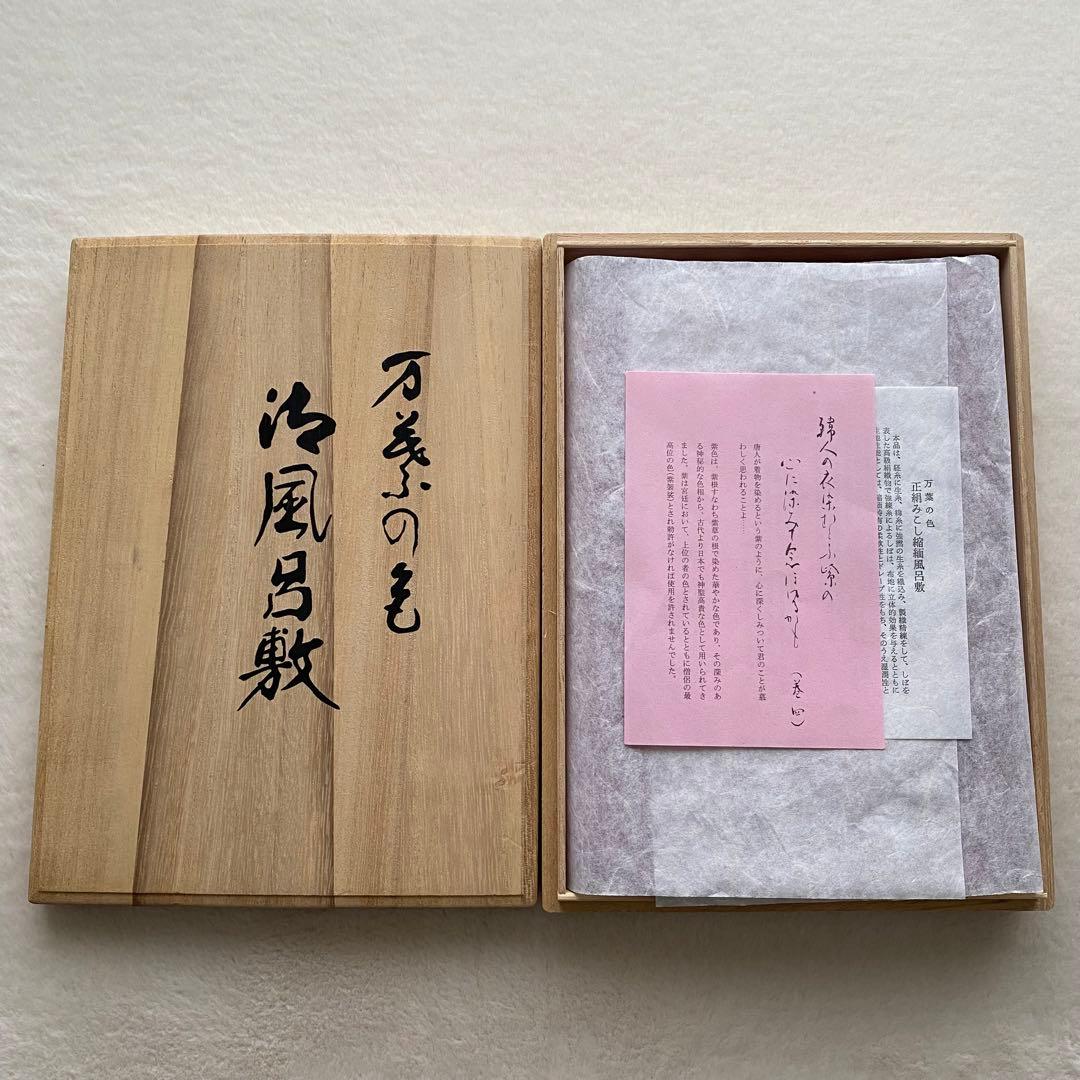 万葉の色
御風呂敷
韓人の衣染むとふ紫の
心に染みて念ほゆるかも
(巻四)
唐人が着物を染めるという紫のように、心に深くしみついて君のことが慕
わしく思われることよ…
紫色は、紫根すなわち紫草の根で染めた華やかな色であり、その深みのあ
る神秘的な色相から、古代より日本でも神聖高貴な色として用いられてき
ました。紫は宮廷において、上位の者の色とされているとともに僧侶の最
高位の色(紫袈裟)とされ勅許がなければ使用を許されませんでした。
万葉の色
正絹みこし縮緬風呂敷
本品は、経糸に生糸、緯糸に強撚の生糸を織込み、製織精練をして、しぼを
表した高級絹織物で強撚糸によるしぼは、布地に立体的効果を与えるとともに